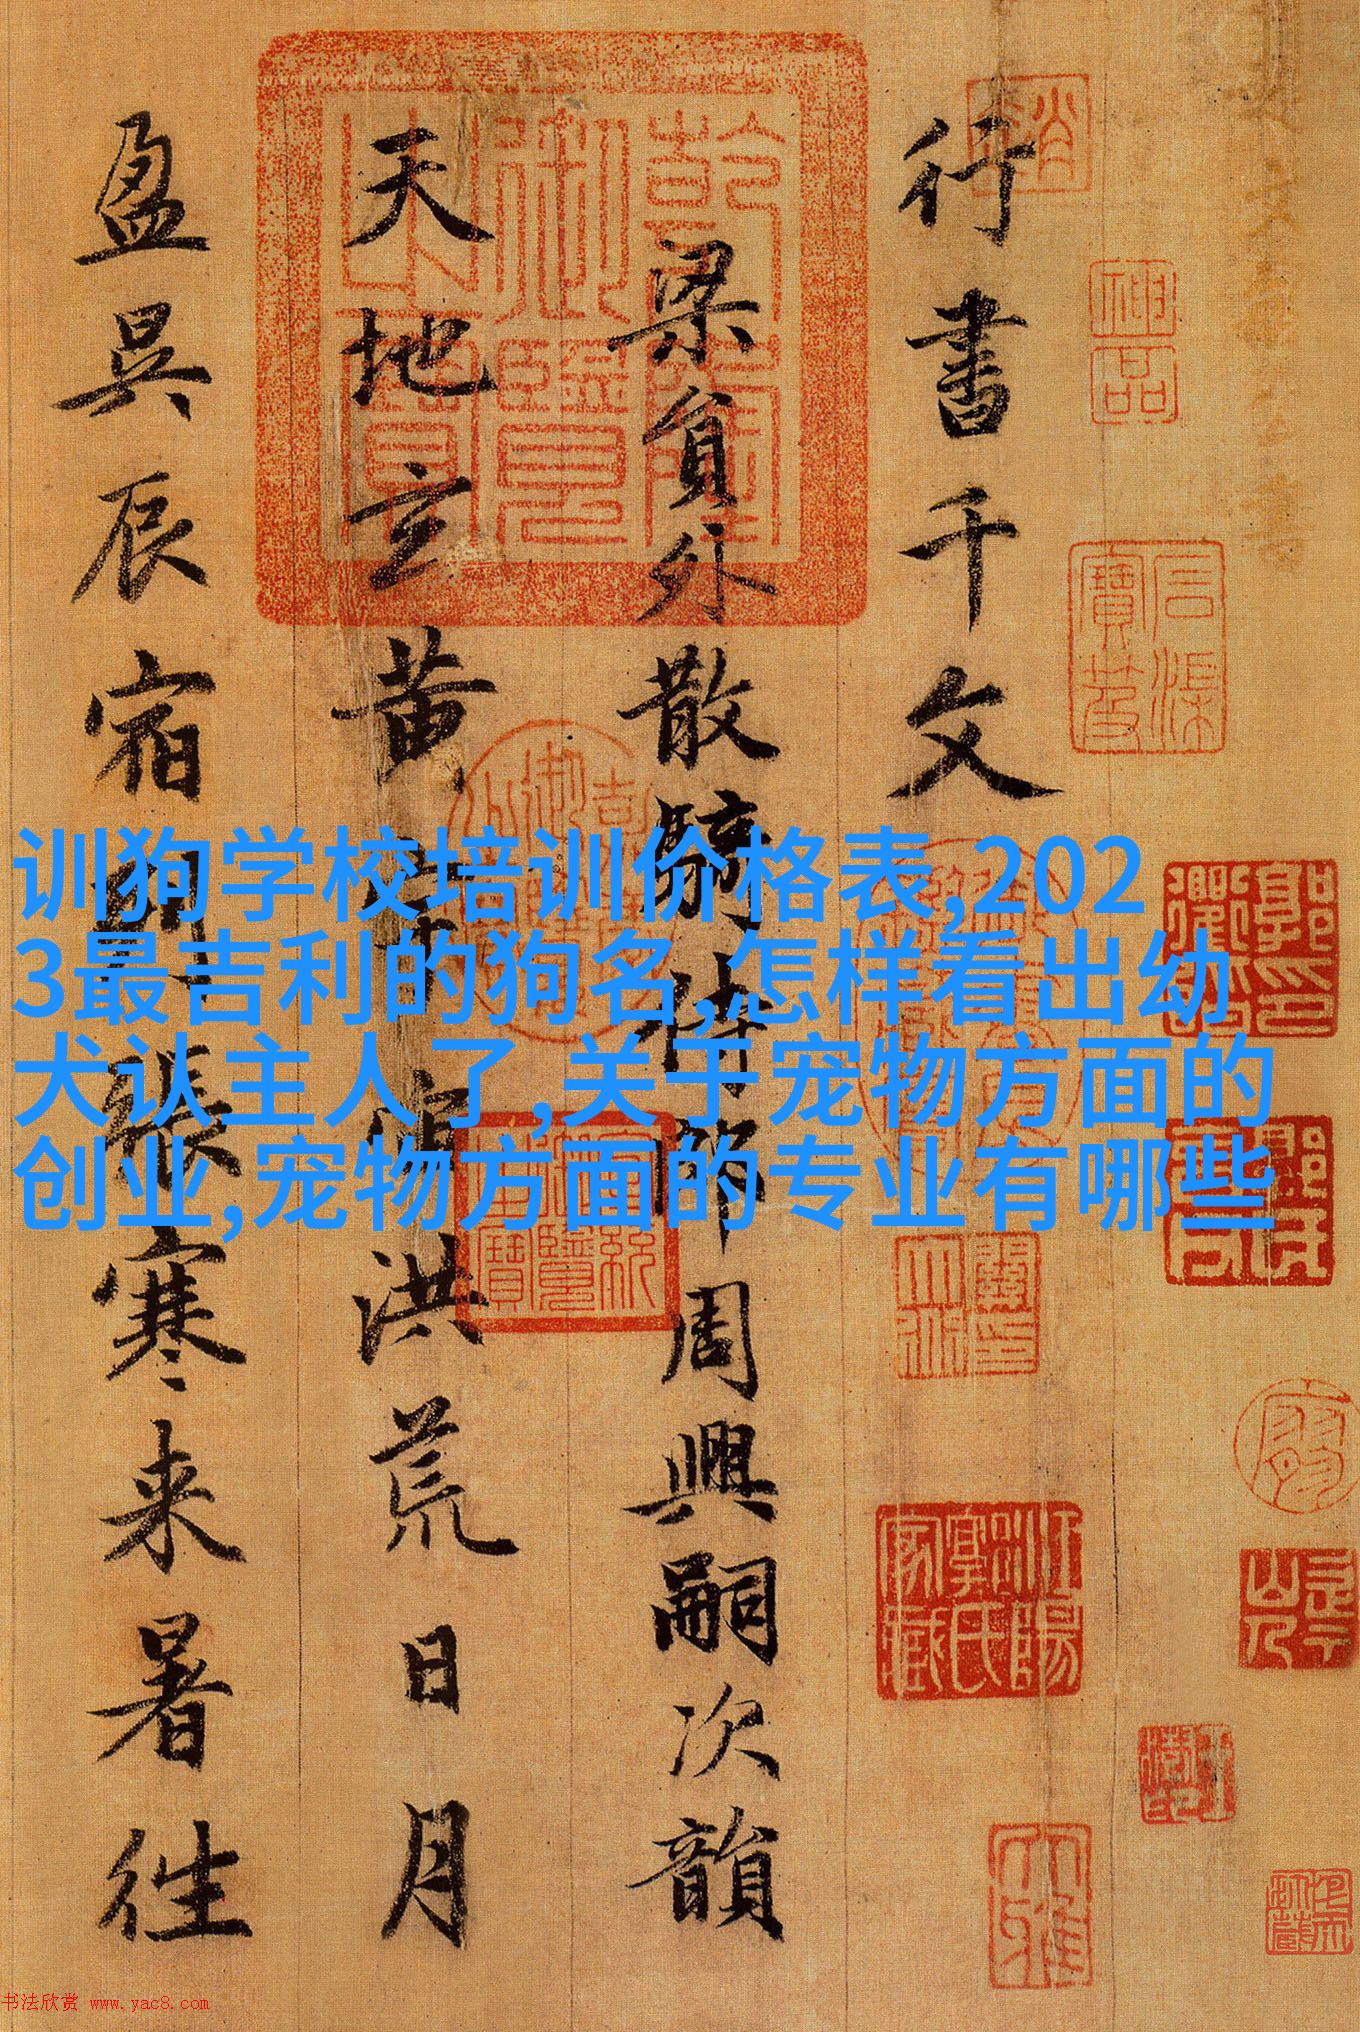 行書千文
梁員外散騎侍郎周興嗣次韻
天地玄黄宇宙洪荒日月
盈昃辰宿列張寒来暑往
训狗学校培训价格表,202
3最吉利的狗名,怎样看出幼
犬认主人了,关于宠物方面的
创业,宠物方面的专业有哪些
乾隆御覽之寶
神品
书法欣赏 www.yac8.com